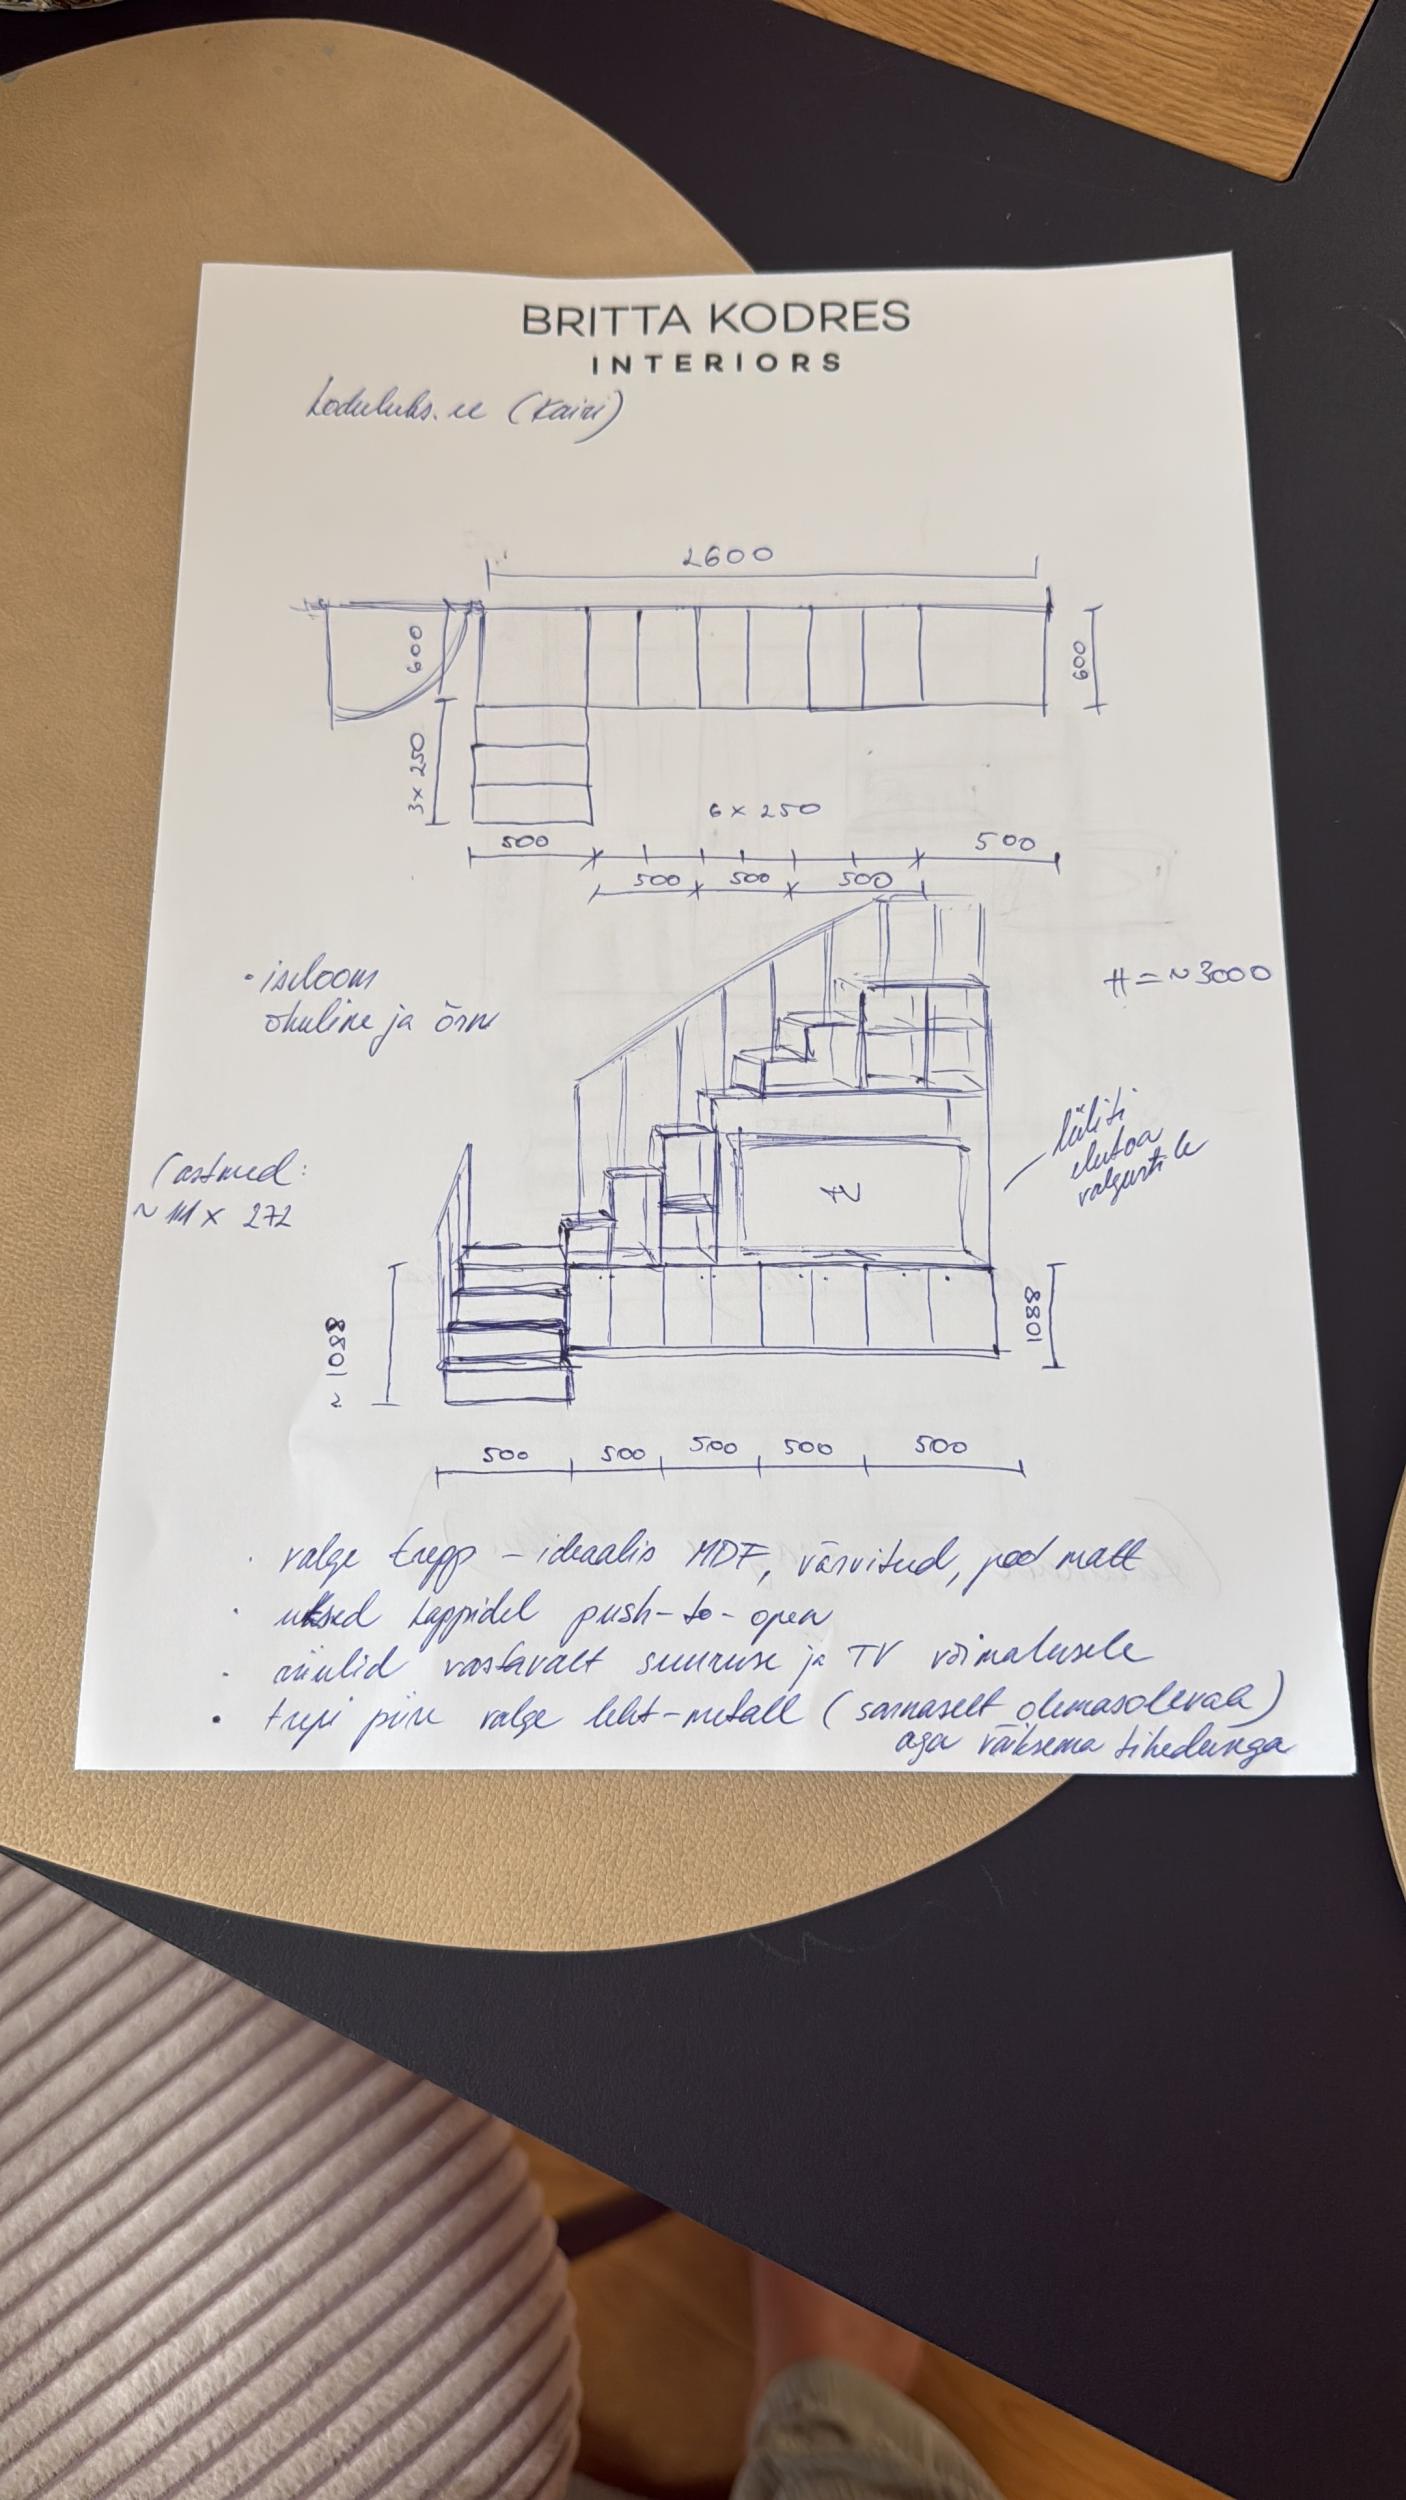 BRITTA KODRES
INTERIORS
koduluks.ee (Kairi)
2600
600
600
3 x 250
6 x 250
500
500
500
500
500
• iseloom
õhuline ja õrn
H = ~3000
lüliti
elutoa
valgustile
(astmed:
~ 11 x 272
TV
~ 1088
1088
500
500
500
500
500
• valge trepp - ideaalis MDF, värvitud, pool matt
• uksed kappidel push-to-open
• riiulid vastavalt suuruse ja TV võimalusele
• trepi piire valge leht-metall (sarnaselt olemasolevale)
aga väiksema tihedusega